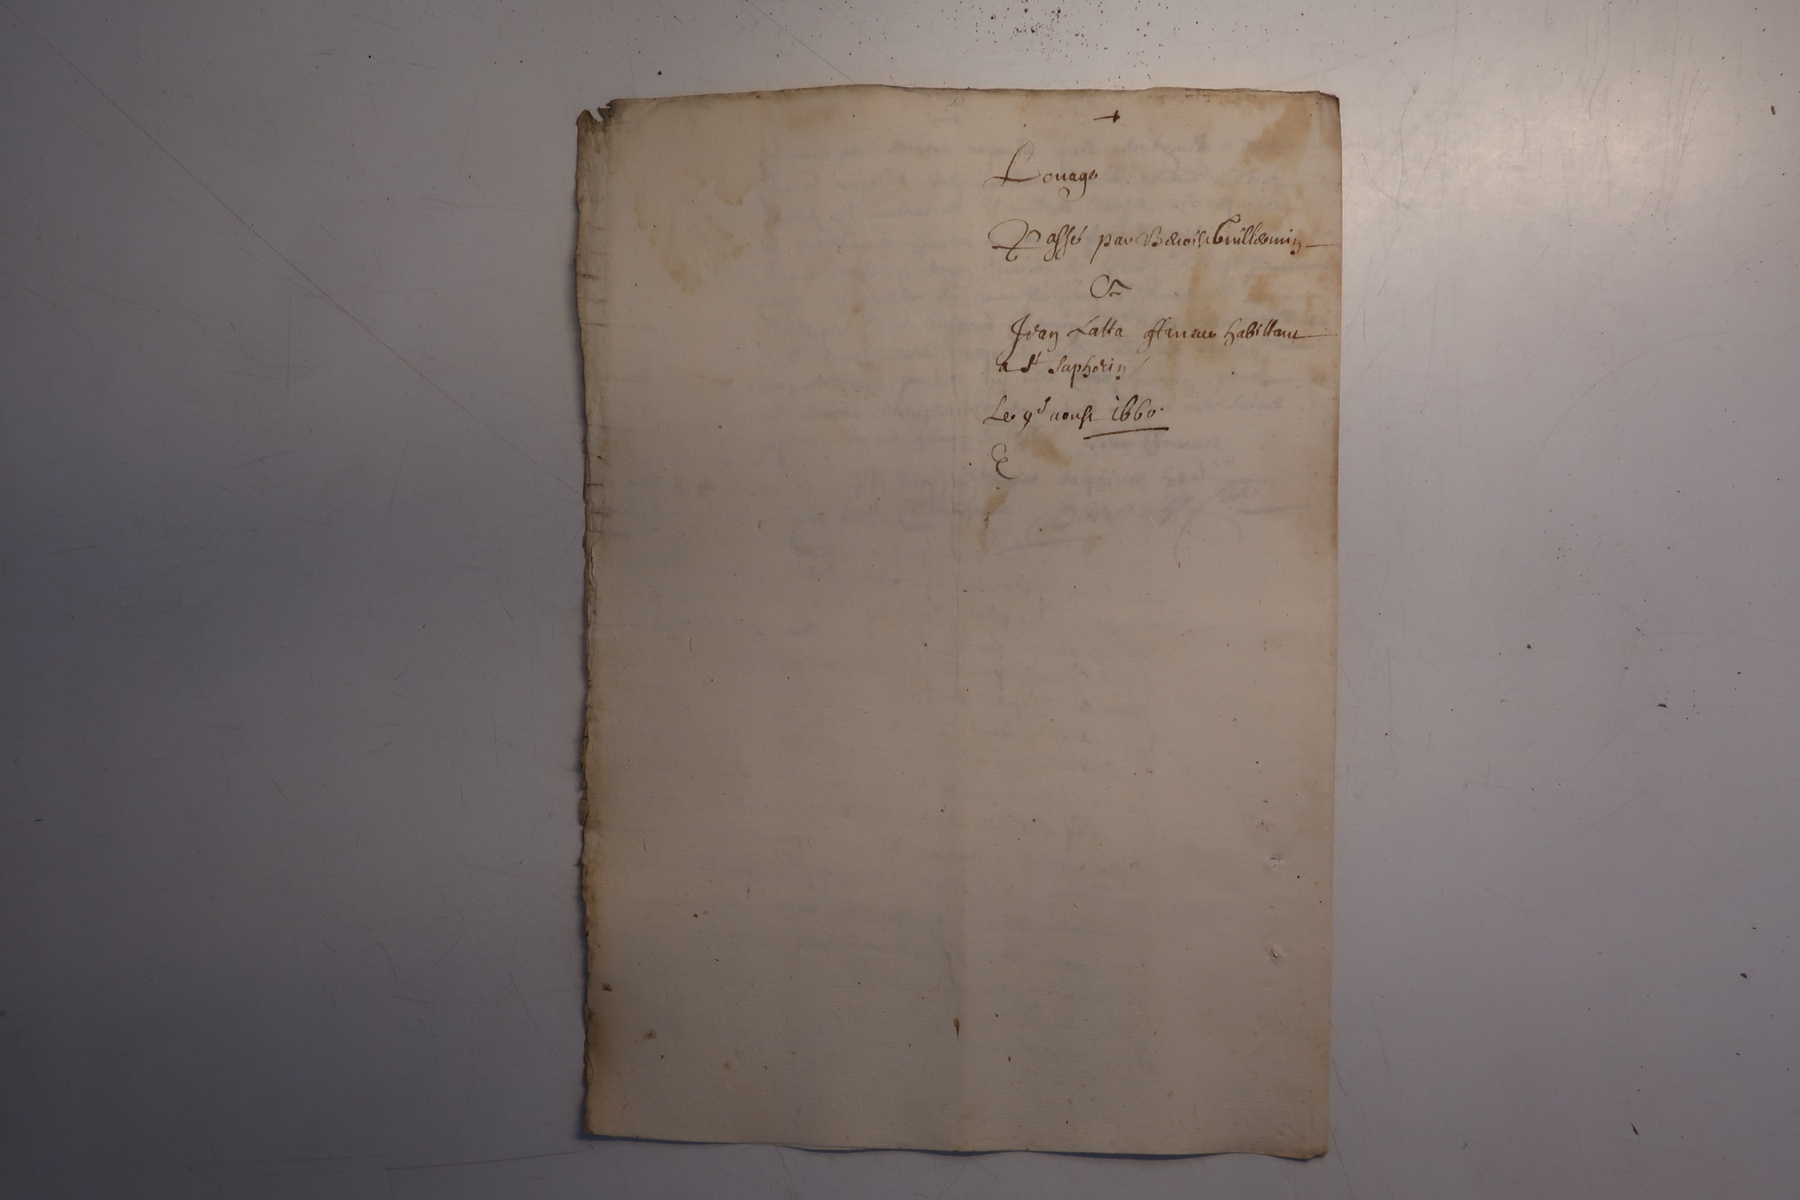 Louage
Passé par Benoist Guillermin
Et
Jean Latta habittant
a St Saphorin
Le 9e aoust 1660.